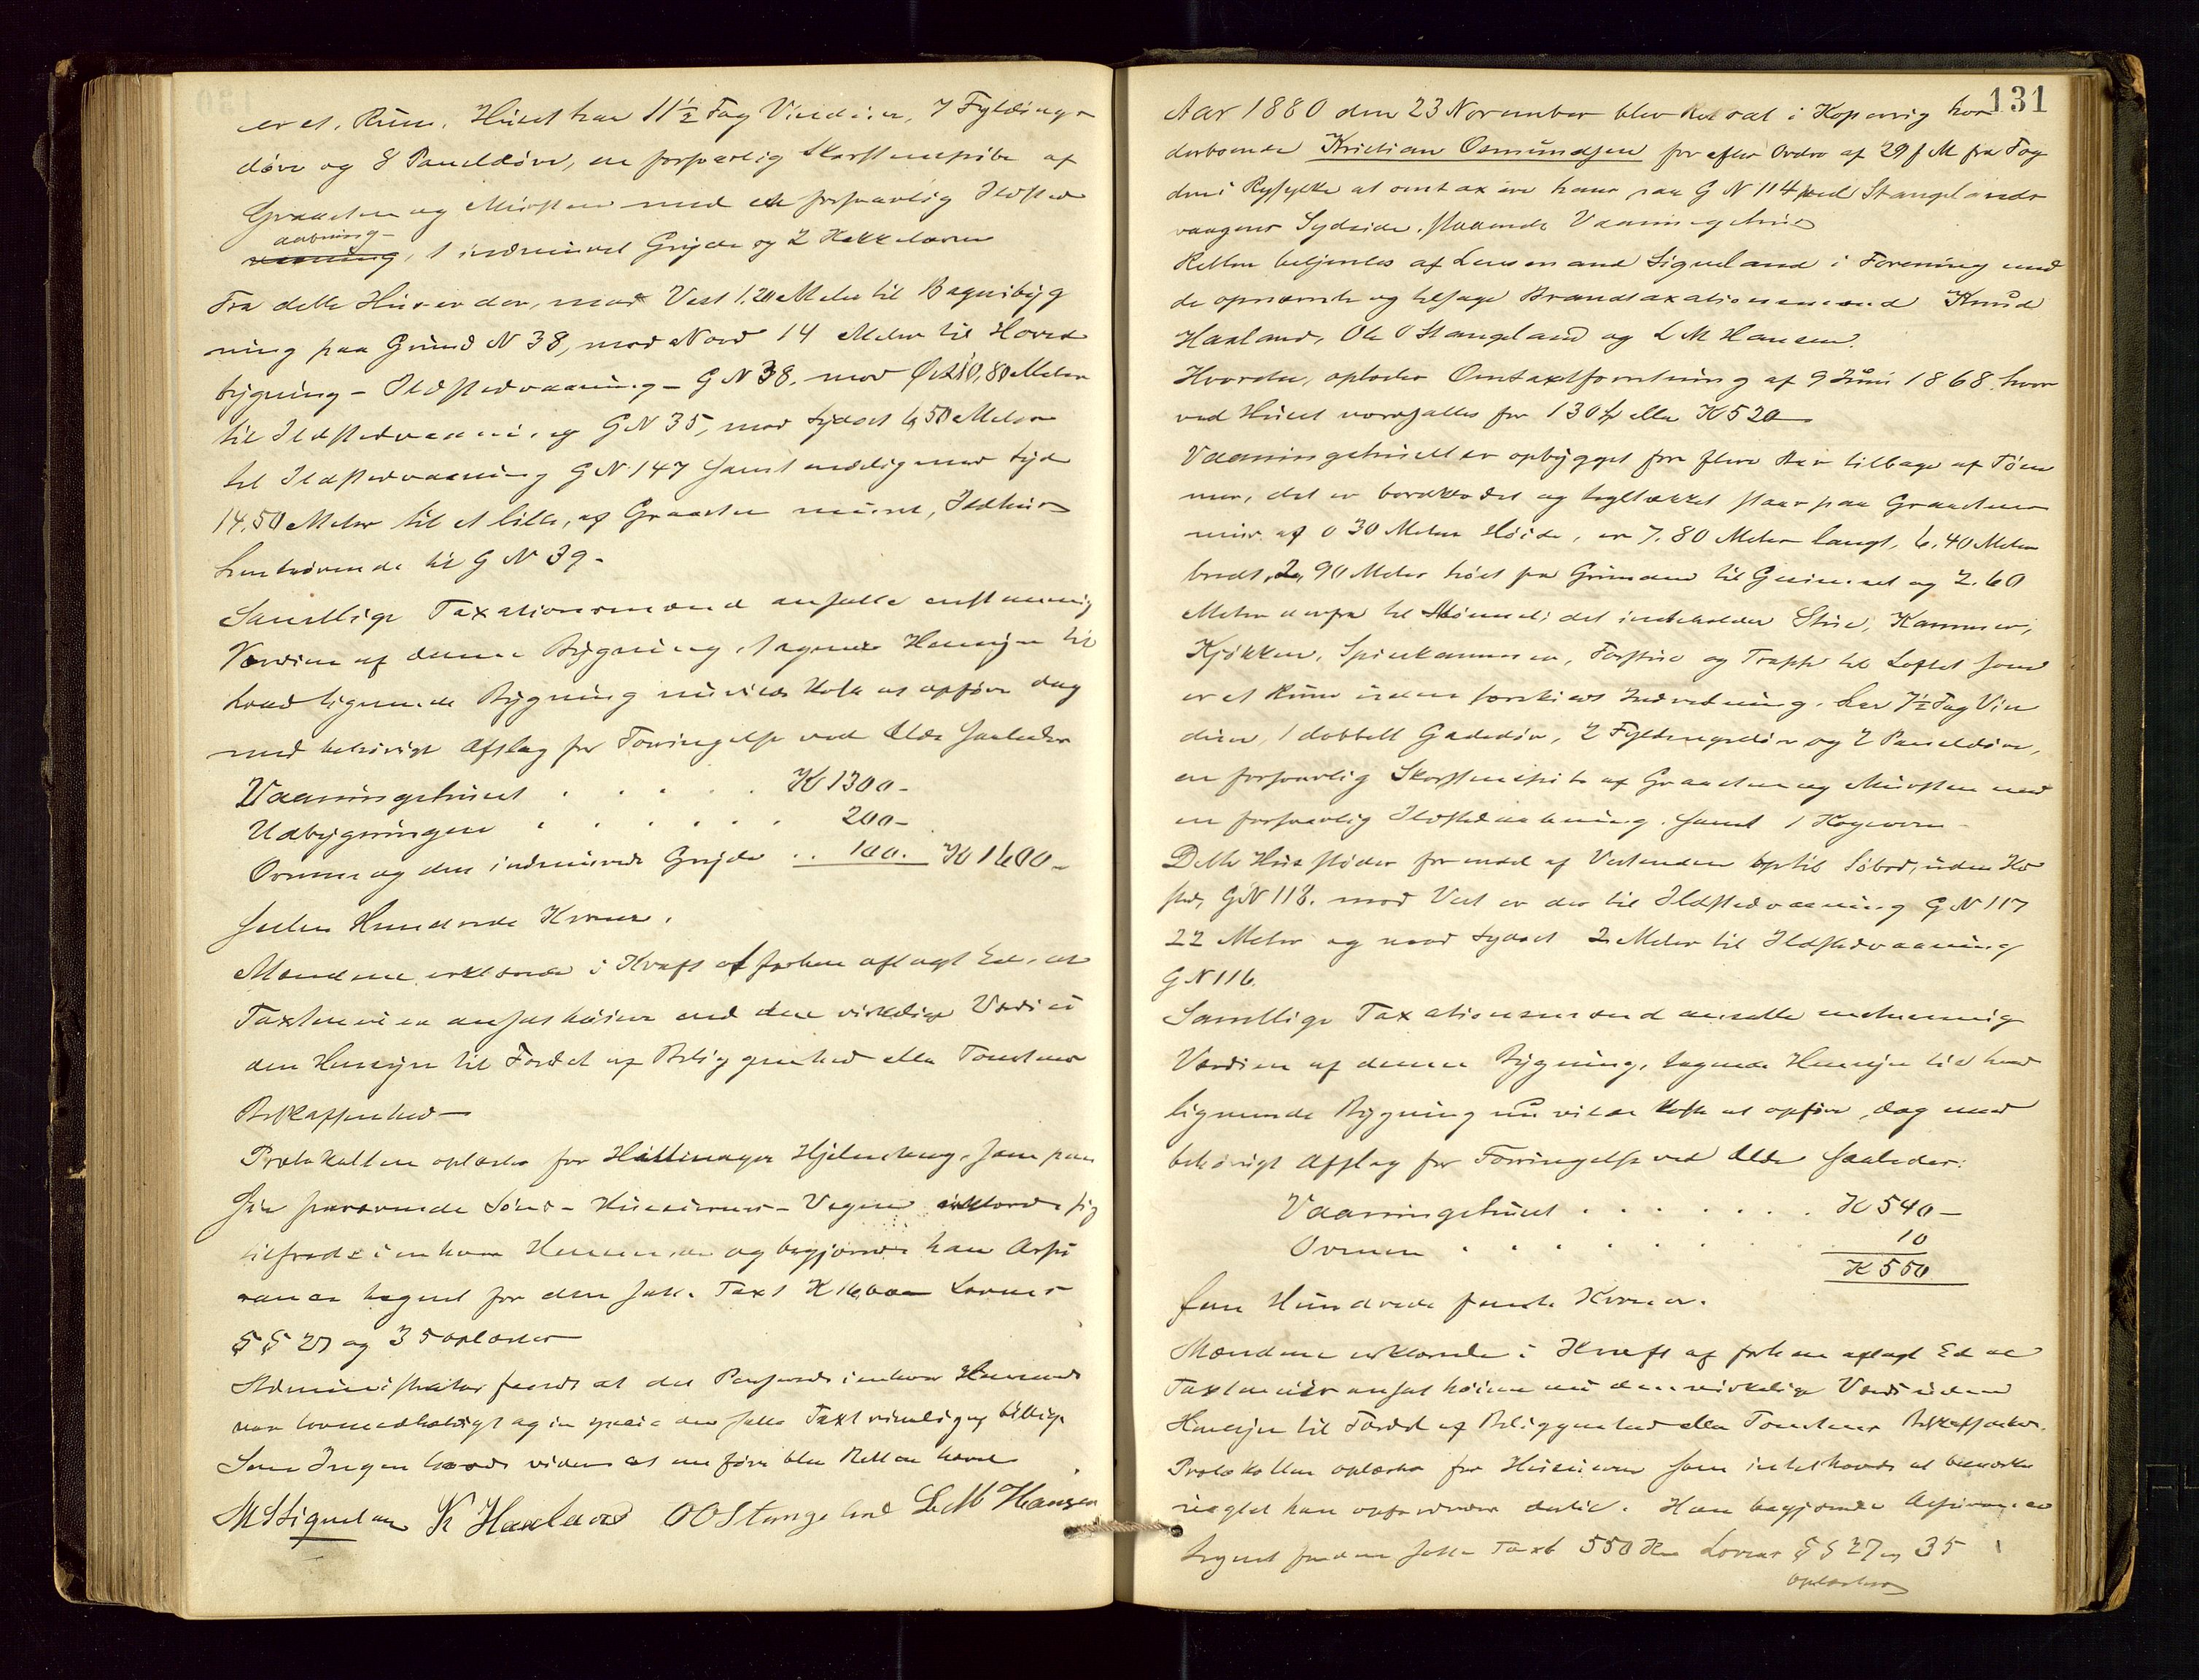 er et Rum. Huset har 11½ Fag Vinduer, 7 Fyldings-
døre og 8 Paneldøre, en forsvarlig Skorstenspibe af
Graasten og Mursten med et forsvarlig Ildsted
aabning
, 1 indmuret Gryde og 2 Kakkelovne
Fra dette Hus er der, mod Vest 1,20 Meter til Bageribyg
ning paa Grund N 38, mod Nord 14 Meter til Hoved
bygning - Ildstedvaaning - G N 38, mod Øst 10,80 Meter
til Ildstedvaaning G N 35, mod Sydost 6,50 Meter
til Ildstedvaaning G N 147 samt endelig mod Syd
14,50 Meter til et lille, af Graasten muret, Ildhus
henhørende til G N 39 -
Samtlige Taxationsmænd ansatte enstemmig
Værdien af denne Bygning, tagende Hensyn til
hvad lignende Bygning nu vilde koste at opføre dog
med behørigt Afslag for Forringelse ved Ælde saaledes
Vaaningshuset . . . . . K 1300 -
Udbygningen . . . . . . 200 -
Ovnene og den indmurede Gryde . . 100. K 1600 -
Sexten Hundrede Kroner.
Mændene erklærede i Kraft af forhen aflagt Ed, at
Taxten ei er ansat høiere end den virkelige Værdi u
den Hensyn til Fordel af Beliggenhed eller Tomtens
Beskaffenhed -
Protokollen oplæstes for Hjelmtveg, som paa
sin fraværende Søns - Huseierens - Vegne erklærede sig
tilfreds i enhver Henseende og begjærede han Assu
rancen tegnet for den satte Taxt K 1600 - Lovens
§ § 27 og 35 oplæstes -
Administrator fandt at det Passerede i enhver Henseende
var lovmedholdigt og in specie den satte Taxt rimelig og billig.
Som Ingen havde videre at anføre blev Retten hævet
M Sigueland K Haaland O O Stangeland L M Hansen
131
Aar 1880 den 23 November blev Ret sat i Kopervig hos
derboende Kristian Osmundsen for efter Ordre af 29 f M fra Fog
den i Ryfylke at omtaxere hans paa G N 114 ved Stangelands
vaagens Sydside staaende Vaaningshus
Retten betjentes af Lensmand Sigueland i Forening med
de opnævnte og tilsagte Brandtaxationsmænd Knud
Haaland, Ole O Stangeland og L M Hansen.
Hvorefter oplæstes Omtaxtforretning af 9 Juni 1868 hvor
ved Huset værdsattes for 130 Spd eller K 520
Vaaningshuset er opbygget for flere Aar tilbage af Tøm
mer, det er bordklædt og tegltækket staar paa Graastens
mur af 0 30 Meter Høide, er 7,80 Meter langt, 6,40 Meter
bredt, 2,90 Meter høit fra Grunden til Gesimset og 2.60
Meter derfra til Mønnet; det indeholder Stue, Kammer,
Kjøkken, Spisekammer, Forstue og Trappe til Loftet som
er et Rum uden særskilt Indredning. Har 7½ Fag Vin
duer, 1 dobbelt Gadedør, 2 Fyldingsdøre og 2 Paneldøre,
en forsvarlig Skorstenspibe af Graasten og Mursten med
en forsvarlig Ildstedaabning samt 1 Kogeovn -
Dette Hus støder for endel af Vestenden op til Søbod, uden Ild
sted, G N 118. mod Vest er der til Ildstedvaaning G N 117
22 Meter og mod Sydost 2 Meter til Ildstedvaaning
G N 116
Samtlige Taxationsmænd ansatte enstemmig
Værdien af denne Bygning, tagende Hensyn til hvad
lignende Bygning nu vilde koste at opføre, dog med
behørigt Afslag for Forringelse ved Ælde saaledes:
Vaaningshuset . . . . . . . K 540 -
Ovnen . . . . . . . . . 10
K 550
fem Hundrede femti Kroner.
Mændene erklærede i Kraft af forhen aflagt Ed at
Taxten ei er ansat høiere end den virkelige Værdi uden
Hensyn til Fordel af Beliggenhed eller Tomtens Beskaffenhed.
Protokollen oplæstes for Huseieren som intet havde at bemærke
uagtet han opfordredes dertil. Han begjærede Assurancen
tegnet for den satte Taxt 550 Kr Lovens § § 27 og 35
oplæstes